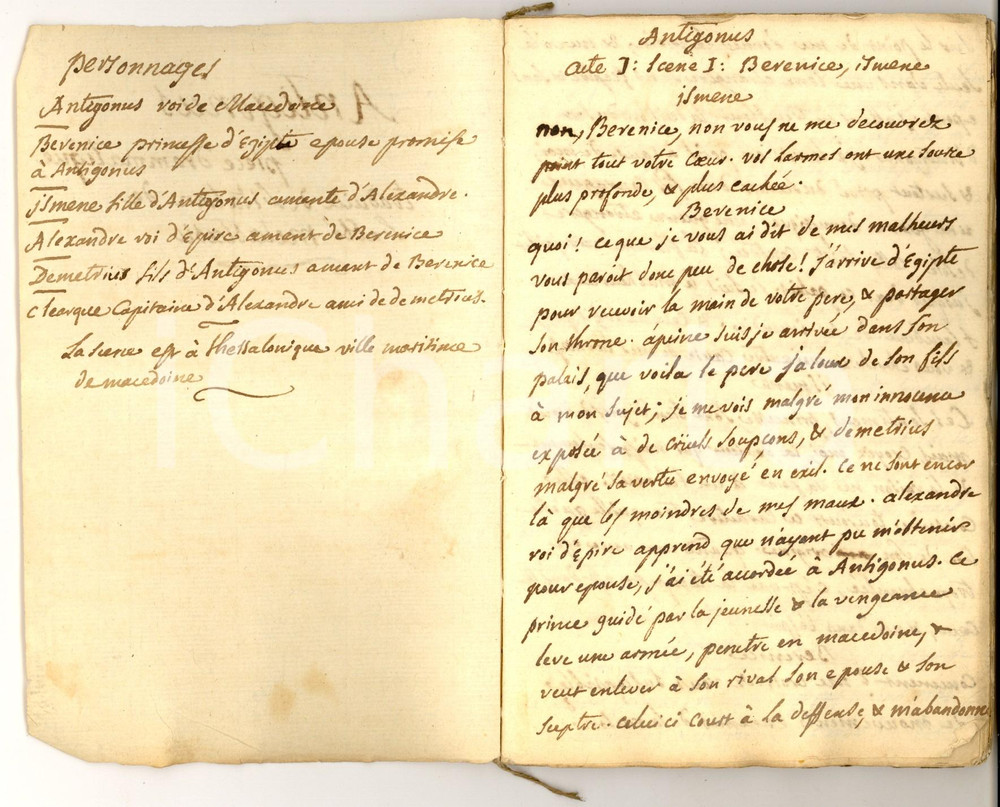 personnages
Antigonus roi de Macedoine
Berenice princesse d'Egipte epouse promise
à Antigonus
jsmene fille d'Antigonus amante d'Alexandre.
Alexandre roi d'Epire amant de Berenice
Demetrius fils d'Antigonus amant de Berenice
Clearque Capitaine d'Alexandre ami de demetrius.
La scene est à Thessalonique ville maritime
de macedoine
Antigonus
Acte I: Scene I: Berenice, ismene
ismene
non, Berenice, non vous ne me decouvrez
point tout votre Cœur. vos larmes ont une source
plus profonde, & plus cachée.
Berenice
quoi! ce que je vous ai dit de mes malheurs
vous paroit donc peu de chose! j'arrive d'Egipte
pour recevoir la main de votre pere, & partager
son throne. à peine suis je arrivée dans son
palais, que voila le pere jaloux de son fils
à mon sujet; je me vois malgré mon innocence
exposée à de cruels soupçons, & demetrius
malgré sa vertu envoyé en exil. Ce ne sont encor
là que les moindres de mes maux. alexandre
roi d'Epire apprend que n'ayant pu m'obtenir
pour epouse, j'ai été accordée à Antigonus. Ce
prince guidé par la jeunesse & la vengeance
leve une armée, penetre en macedoine, &
veut enlever à son rival son epouse & son
sceptre. celui ci court à la deffense, & m'abandonne